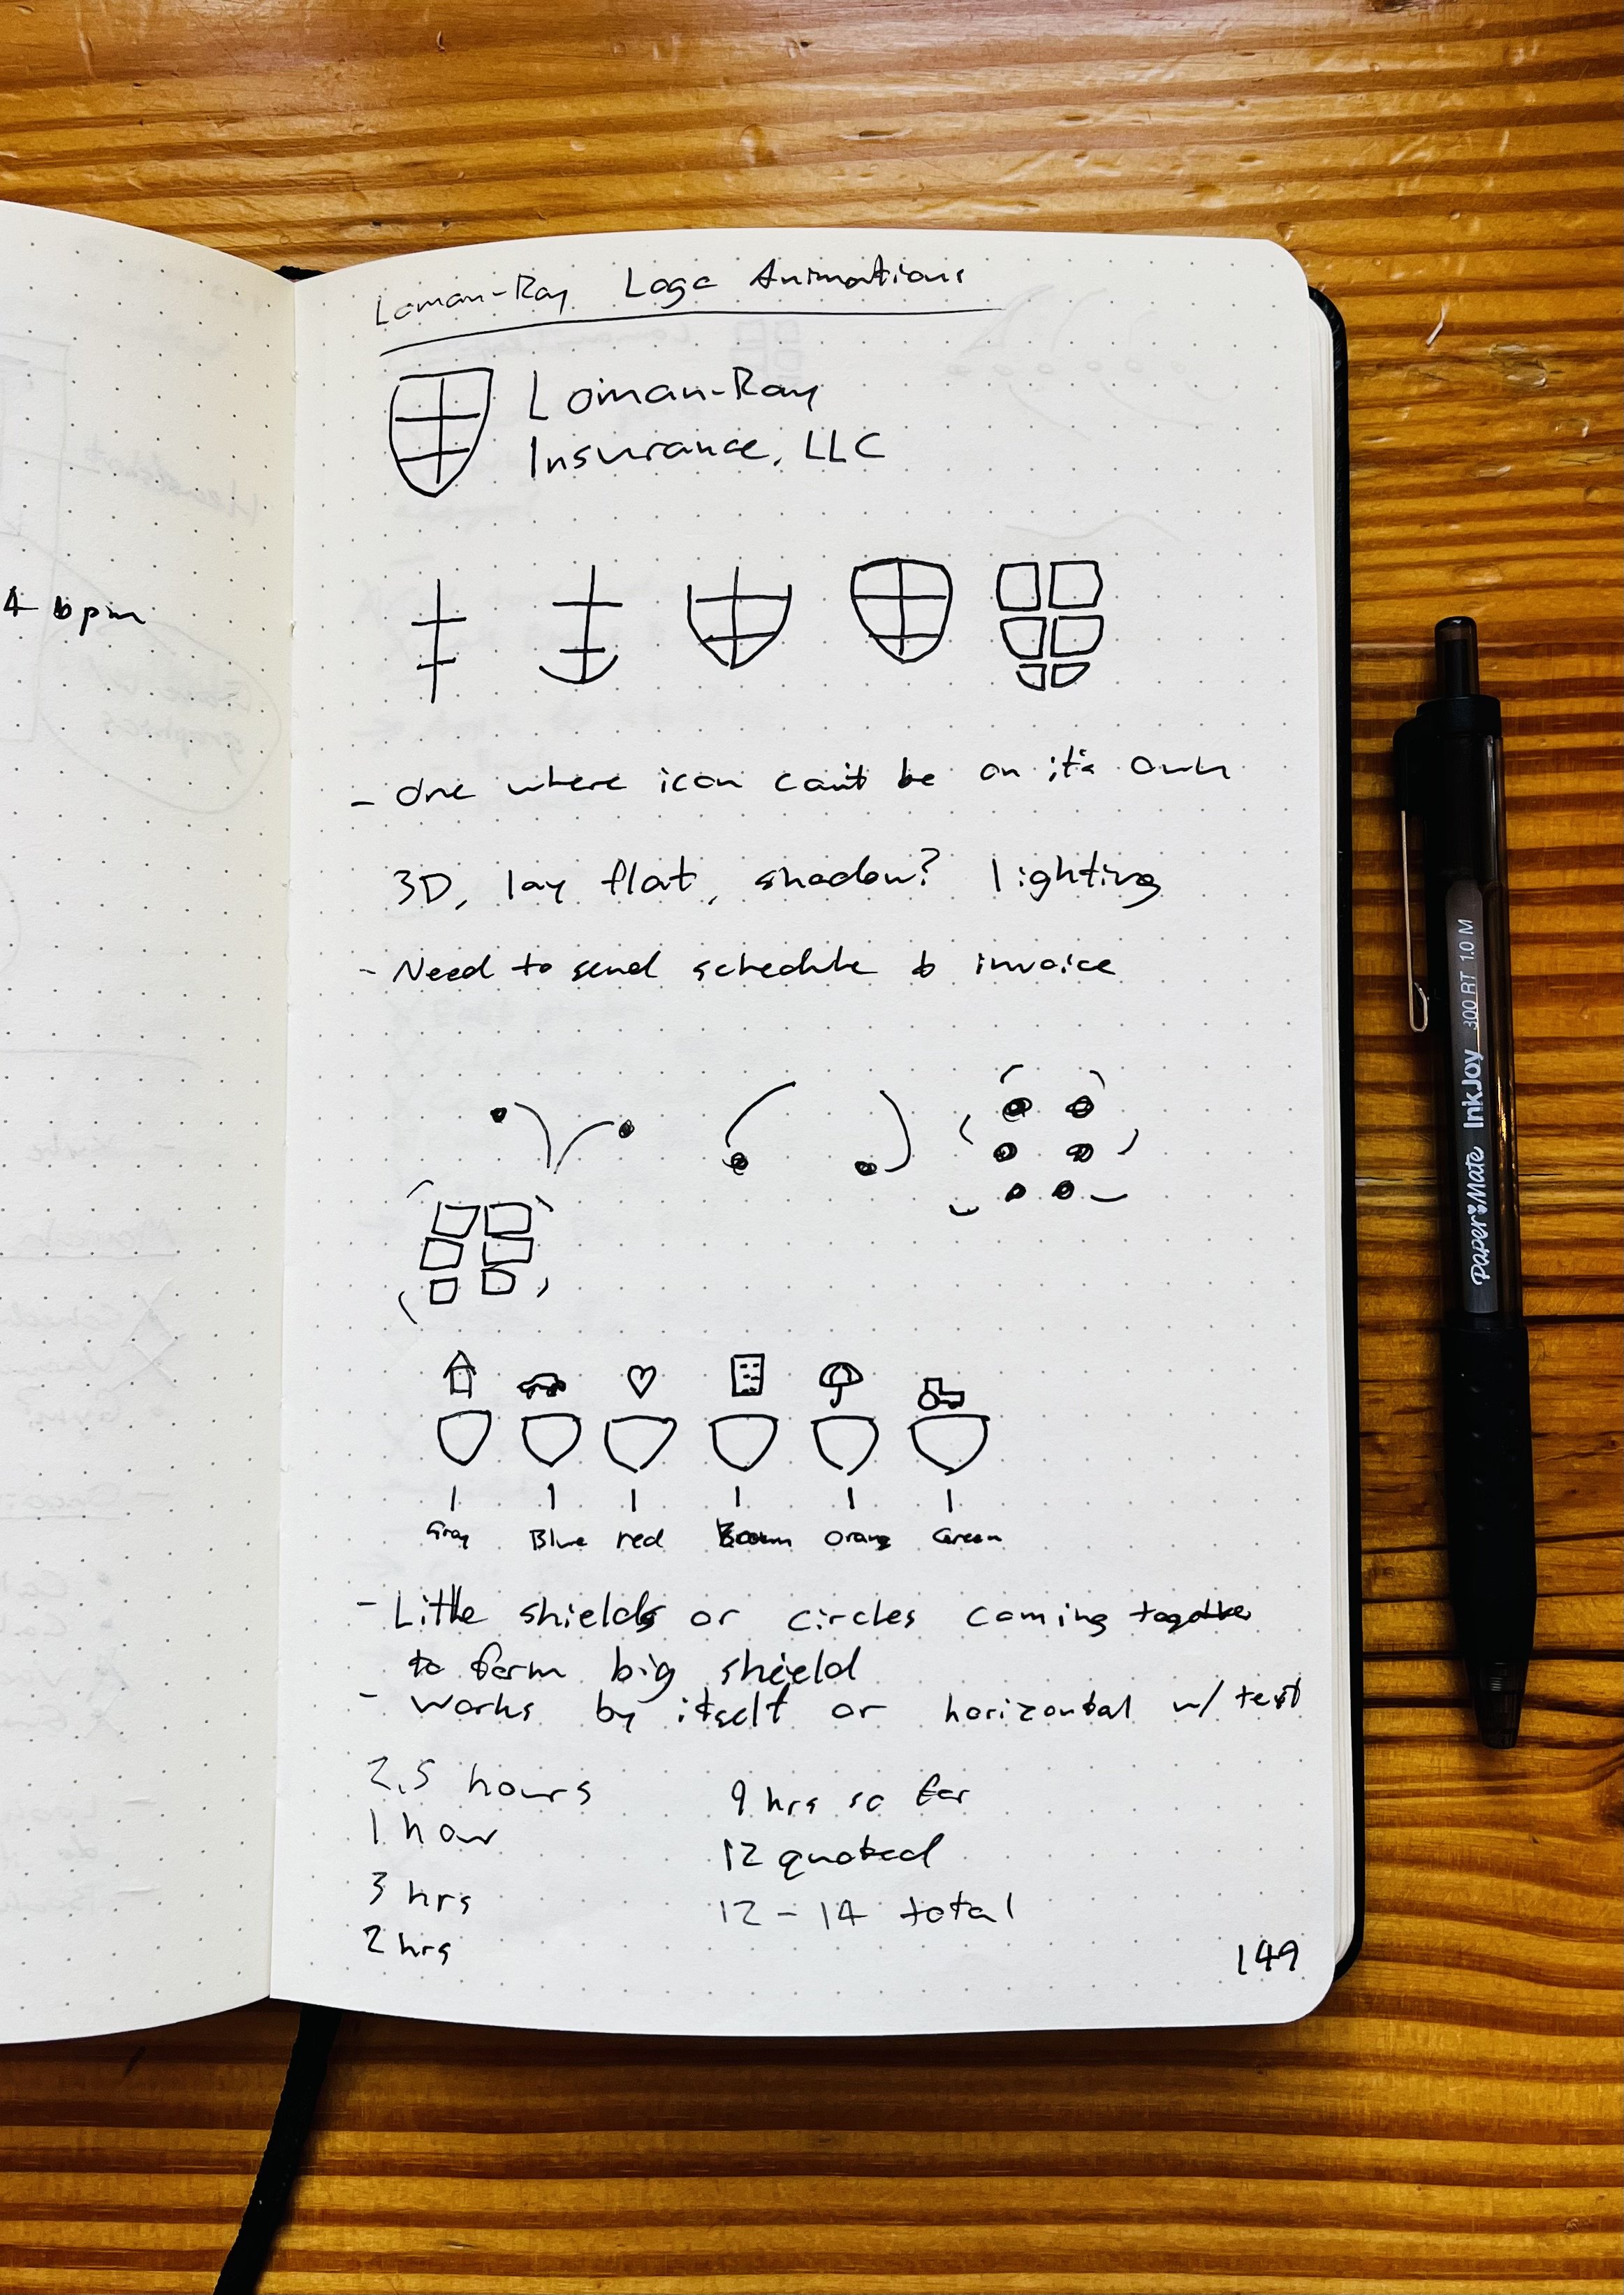 4 bpm
Loman-Ray Logo Animations
Loman-Ray
Insurance, LLC
- One where icon can't be on it's own
3D, lay flat, shadow? lighting
- Need to send schedule & invoice
Gray Blue red Brown Orang Green
- Little shields or circles coming together
to form big shield
- works by itself or horizontal w/ text
2.5 hours
1 hour
3 hrs
2 hrs
9 hrs so far
12 quoted
12-14 total
149
Paper Mate InkJoy 300 RT 1.0 M